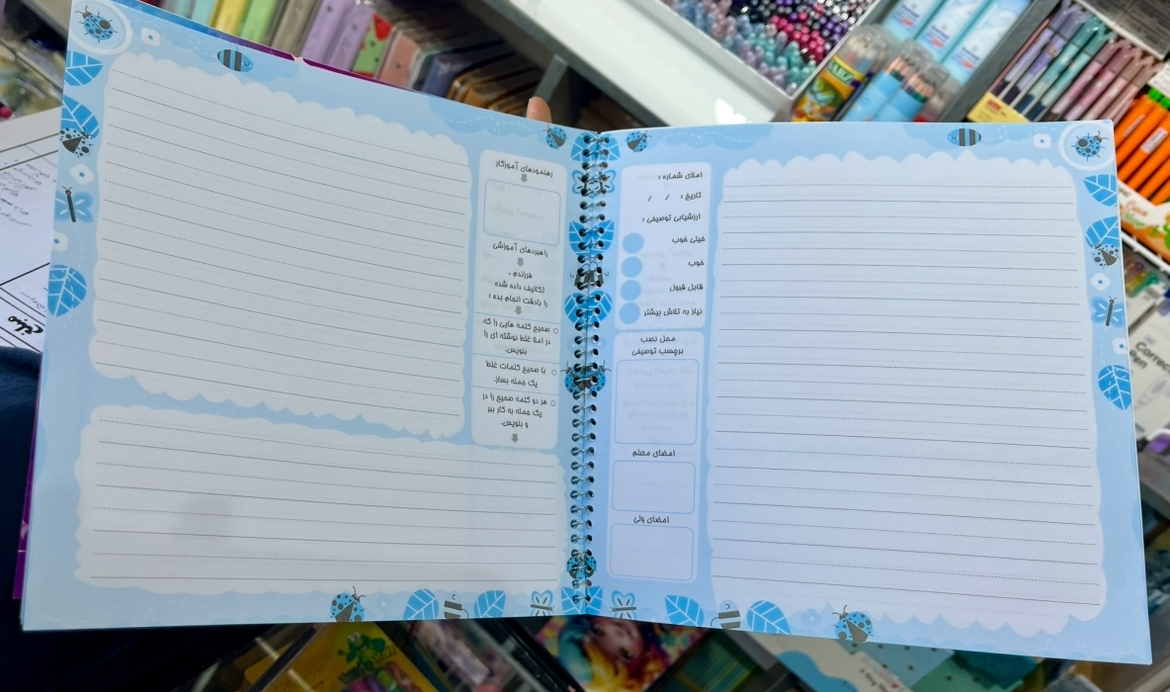 املای شماره :
تاریخ :    /    /
ارزشیابی توصیفی :
خیلی خوب
خوب
قابل قبول
نیاز به تلاش بیشتر
محل نصب
برچسب توصیفی
امضای معلم
امضای ولی
رهنمودهای آموزگار
راهبردهای آموزشی
فرزندم ،
تکالیف داده شده
را بادقت انجام بده :
صحیح کلمه هایی را که
در املا غلط نوشته ای را
بنویس.
با صحیح کلمات غلط
یک جمله بساز.
هر دو کلمه صحیح را در
یک جمله به کار ببر
و بنویس.